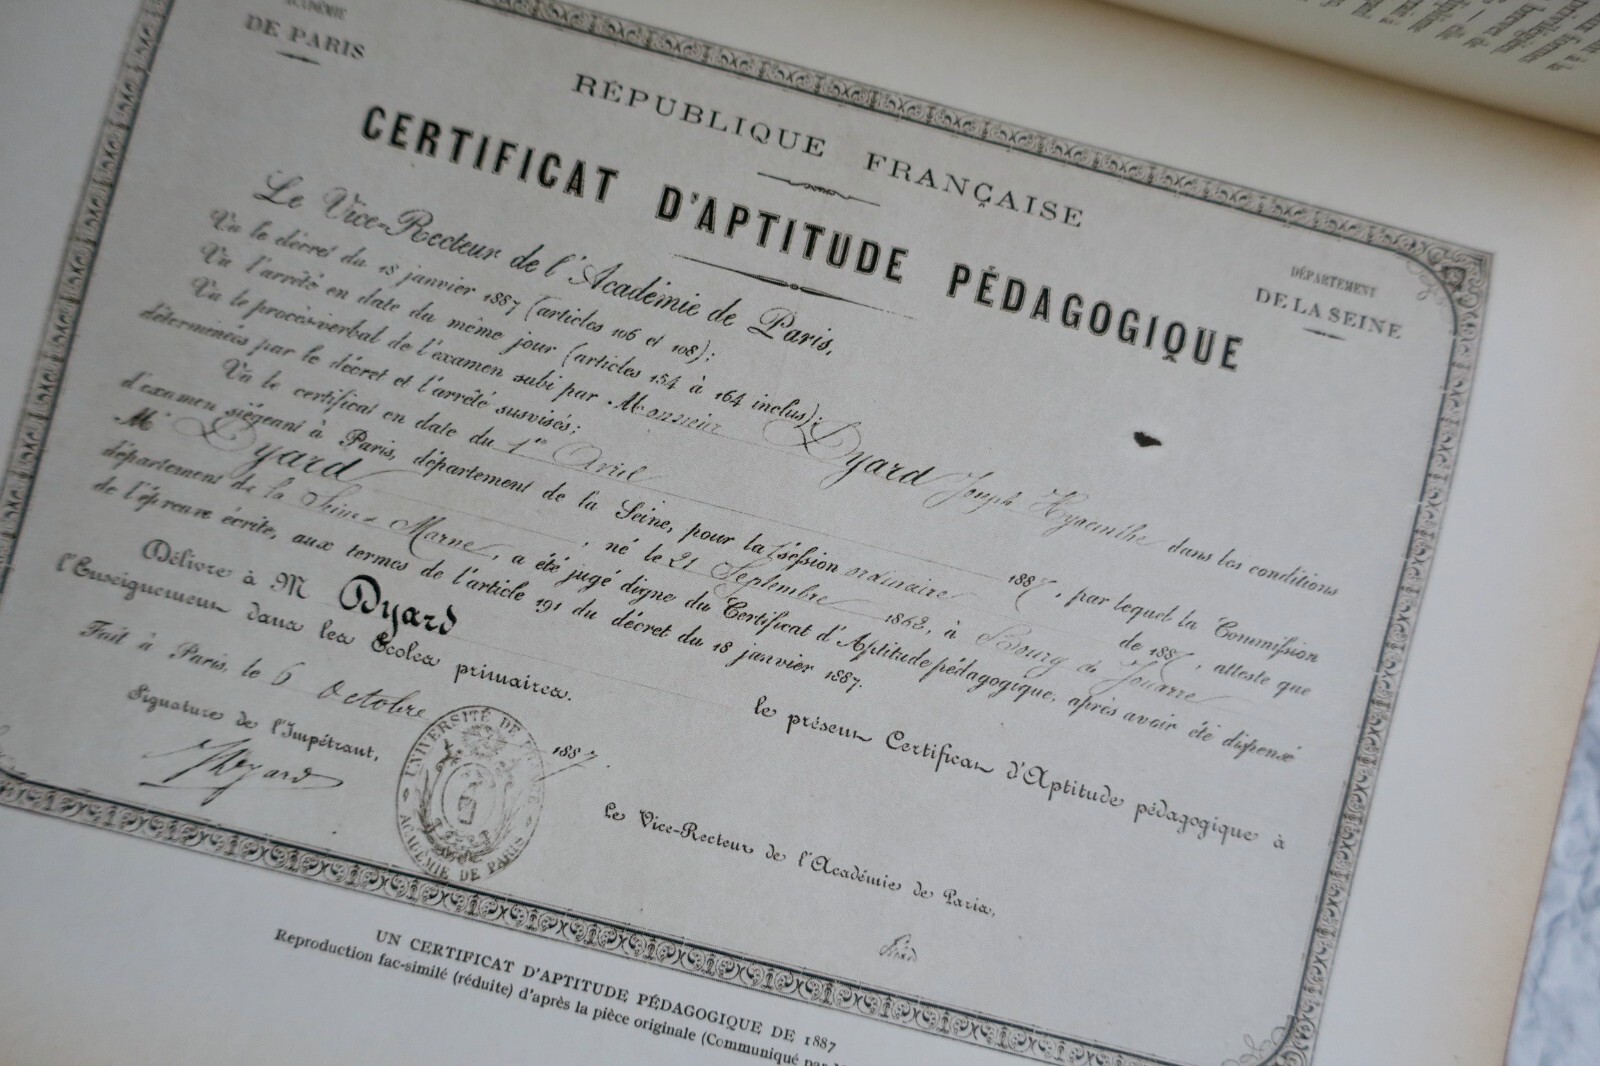 ACADÉMIE
DE PARIS
RÉPUBLIQUE FRANÇAISE
DÉPARTEMENT
DE LA SEINE
CERTIFICAT D'APTITUDE PÉDAGOGIQUE
Le Vice-Recteur de l'Académie de Paris,
Vu le décret du 18 janvier 1887 (articles 106 et 108);
Vu l'arrêté en date du même jour (articles 154 à 164 inclus);
Vu le procès-verbal de l'examen subi par Monsieur Dyard Joseph Hyacinthe dans les conditions
déterminées par le décret et l'arrêté susvisés;
Vu le certificat en date du 1er Avril 1887, par lequel la Commission
d'examen siégeant à Paris, département de la Seine, pour la session ordinaire de 1887, atteste que
Mr Dyard, né le 21 Septembre 1862, à Bourg de Jouarre
département de la Seine & Marne, a été jugé digne du Certificat d'Aptitude pédagogique, après avoir été dispensé
de l'épreuve écrite, aux termes de l'article 191 du décret du 18 janvier 1887.
Délivre à M Dyard le présent Certificat d'Aptitude pédagogique à
l'Enseignement dans les Écoles primaires.
Fait à Paris, le 6 Octobre 1887.
Signature de l'Impétrant,
Dyard
UNIVERSITÉ DE
ACADÉMIE DE PARIS
Le Vice-Recteur de l'Académie de Paris,
UN CERTIFICAT D'APTITUDE PÉDAGOGIQUE DE 1887
Reproduction fac-similé (réduite) d'après la pièce originale (Communiqué par